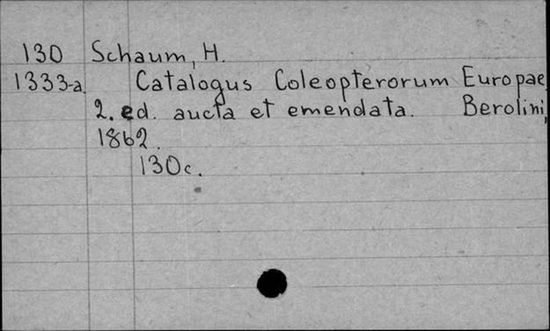 130 Schaum, H.
1333-a. Catalogus Coleopterorum Europae,
2. ed. aucta et emendata. Berolini,
1862.
130c.